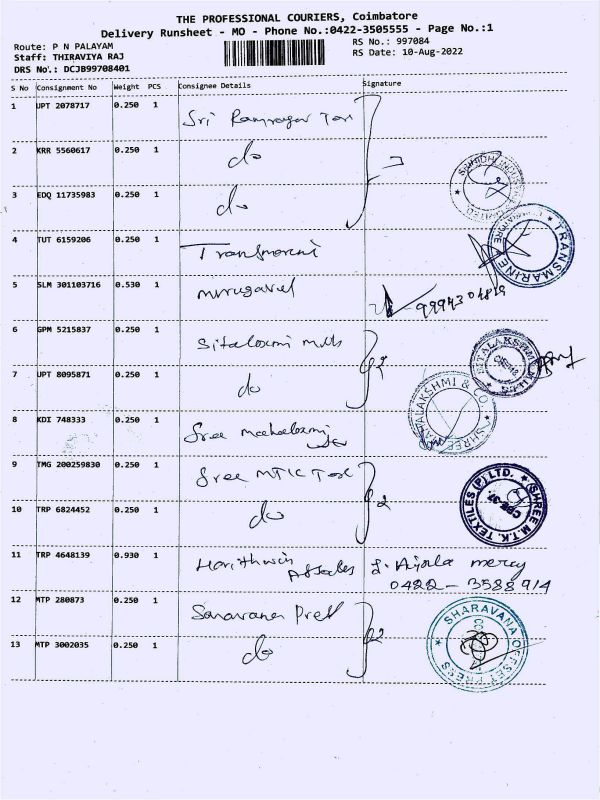 THE PROFESSIONAL COURIERS, Coimbatore
Delivery Runsheet - MO - Phone No.:0422-3505555 - Page No.:1
Route: P N PALAYAM
RS No.: 997084
Staff: THIRAVIYA RAJ
RS Date: 10-Aug-2022
DRS No.: DCJB99708401
S No Consignment No Weight PCS Consignee Details Signature
1 UPT 2078717 0.250 1 Sri Ramnagar Tex
2 KRR 5560617 0.250 1 do
3 EDQ 11735983 0.250 1 do
4 TUT 6159206 0.250 1 Transmarine
TRANSMARINE
5 SLM 301103716 0.530 1 Murugavel
6 GPM 5215837 0.250 1 Sitalaxmi Mills
2
SITALAKSHMI MILLS
7 UPT 8095871 0.250 1 do
8 KDI 748333 0.250 1 Sree
SHREE MAHALAKSHMI & CO.
9 TMG 200259830 0.250 1 Sree MTK Tex
2
SHREE M.T.K. TEXTILES (P) LTD.
CBE-37
10 TRP 6824452 0.250 1 do
11 TRP 4648139 0.930 1 mercy
0422-3588914
12 MTP 280873 0.250 1 Saravana
2
SHARAVANA OFFSET PRESS
13 MTP 3002035 0.250 1 do